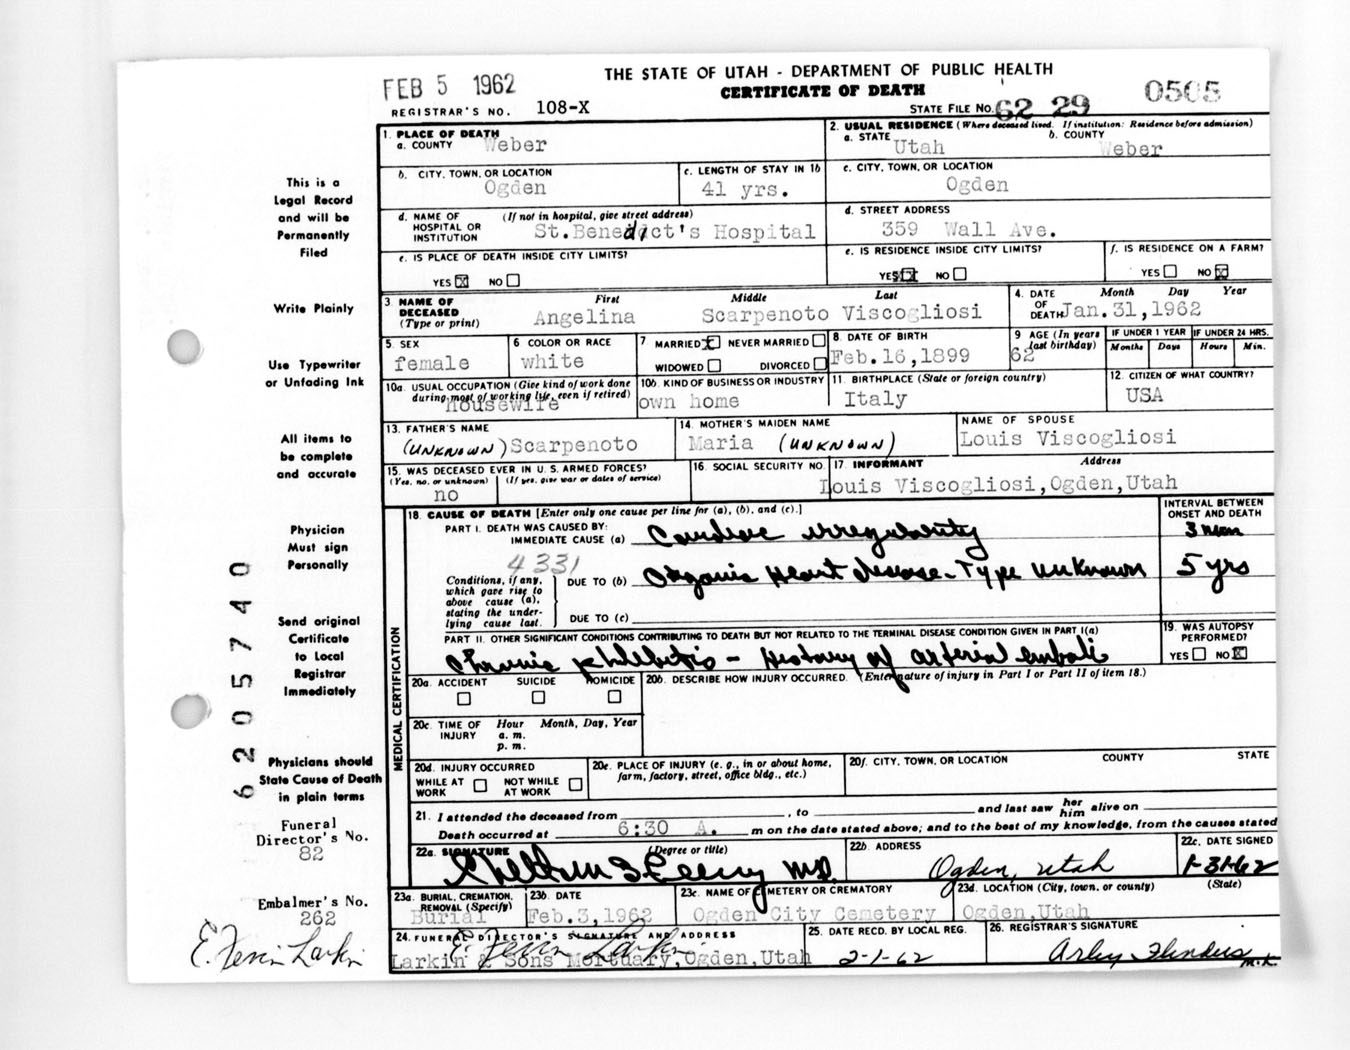 FEB 5 1962
THE STATE OF UTAH - DEPARTMENT OF PUBLIC HEALTH
CERTIFICATE OF DEATH
REGISTRAR'S NO. 108-X
STATE FILE NO. 62 29 0505
1. PLACE OF DEATH
a. COUNTY Weber
2. USUAL RESIDENCE (Where deceased lived. If institution: Residence before admission)
a. STATE Utah b. COUNTY Weber
b. CITY, TOWN, OR LOCATION Ogden
c. LENGTH OF STAY IN 1b 41 yrs.
c. CITY, TOWN, OR LOCATION Ogden
d. NAME OF HOSPITAL OR INSTITUTION (If not in hospital, give street address) St.Benedict's Hospital
d. STREET ADDRESS 359 Wall Ave.
e. IS PLACE OF DEATH INSIDE CITY LIMITS?
YES X NO
e. IS RESIDENCE INSIDE CITY LIMITS?
YES X NO
f. IS RESIDENCE ON A FARM?
YES NO X
3. NAME OF DECEASED (Type or print)
First Middle Last
Angelina Scarpenoto Viscogliosi
4. DATE OF DEATH Month Day Year
Jan.31,1962
5. SEX female
6 COLOR OR RACE white
7 MARRIED X NEVER MARRIED
WIDOWED DIVORCED
8. DATE OF BIRTH Feb.16,1899
9 AGE (In years last birthday) 62
IF UNDER 1 YEAR Months Days
IF UNDER 24 HRS. Hours Min.
10a. USUAL OCCUPATION (Give kind of work done during most of working life, even if retired) housewife
10b. KIND OF BUSINESS OR INDUSTRY own home
11. BIRTHPLACE (State or foreign country) Italy
12. CITIZEN OF WHAT COUNTRY? USA
13. FATHER'S NAME (UNKNOWN) Scarpenoto
14. MOTHER'S MAIDEN NAME Maria (UNKNOWN)
NAME OF SPOUSE Louis Viscogliosi
15. WAS DECEASED EVER IN U. S. ARMED FORCES?
(Yes, no, or unknown) (If yes, give war or dates of service)
no
16. SOCIAL SECURITY NO.
17. INFORMANT Address
Louis Viscogliosi,Ogden,Utah
MEDICAL CERTIFICATION
18. CAUSE OF DEATH [Enter only one cause per line for (a), (b), and (c).]
INTERVAL BETWEEN ONSET AND DEATH
PART I. DEATH WAS CAUSED BY:
IMMEDIATE CAUSE (a) Cardiac irregularity 3 mon
4331
Conditions, if any, which gave rise to above cause (a), stating the underlying cause last.
DUE TO (b) Organic Heart disease - Type unknown 5 yrs
DUE TO (c)
PART II. OTHER SIGNIFICANT CONDITIONS CONTRIBUTING TO DEATH BUT NOT RELATED TO THE TERMINAL DISEASE CONDITION GIVEN IN PART I(a)
Chronic phlebitis - History of arterial emboli
19. WAS AUTOPSY PERFORMED?
YES NO X
20a. ACCIDENT SUICIDE HOMICIDE
20b. DESCRIBE HOW INJURY OCCURRED. (Enter nature of injury in Part I or Part II of item 18.)
20c. TIME OF INJURY Hour Month, Day, Year
a. m.
p. m.
20d. INJURY OCCURRED
WHILE AT WORK NOT WHILE AT WORK
20e. PLACE OF INJURY (e. g., in or about home, farm, factory, street, office bldg., etc.)
20f. CITY, TOWN, OR LOCATION COUNTY STATE
21. I attended the deceased from , to and last saw her him alive on
Death occurred at 6:30 A. m on the date stated above; and to the best of my knowledge, from the causes stated
22a. SIGNATURE (Degree or title) M.D.
22b. ADDRESS Ogden, Utah
22c. DATE SIGNED 1-31-62
23a. BURIAL, CREMATION, REMOVAL (Specify) Burial
23b. DATE Feb.3,1962
23c. NAME OF CEMETERY OR CREMATORY Ogden City Cemetery
23d. LOCATION (City, town, or county) (State)
Ogden,Utah
24. FUNERAL DIRECTOR'S SIGNATURE AND ADDRESS
E. Fenin Larkin
Larkin & Sons Mortuary,Ogden,Utah
25. DATE RECD. BY LOCAL REG. 2-1-62
26. REGISTRAR'S SIGNATURE
Arley Flinders
m.k.
This is a
Legal Record
and will be
Permanently
Filed
Write Plainly
Use Typewriter
or Unfading Ink
All items to
be complete
and accurate
Physician
Must sign
Personally
Send original
Certificate
to Local
Registrar
Immediately
Physicians should
State Cause of Death
in plain terms
6205740
Funeral
Director's No.
82
Embalmer's No.
262
E. Fenin Larkin